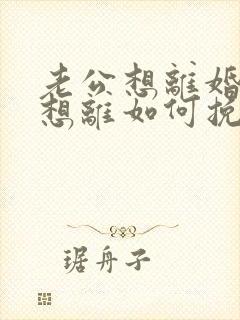 老公想離婚
想離如何挽
琚舟子